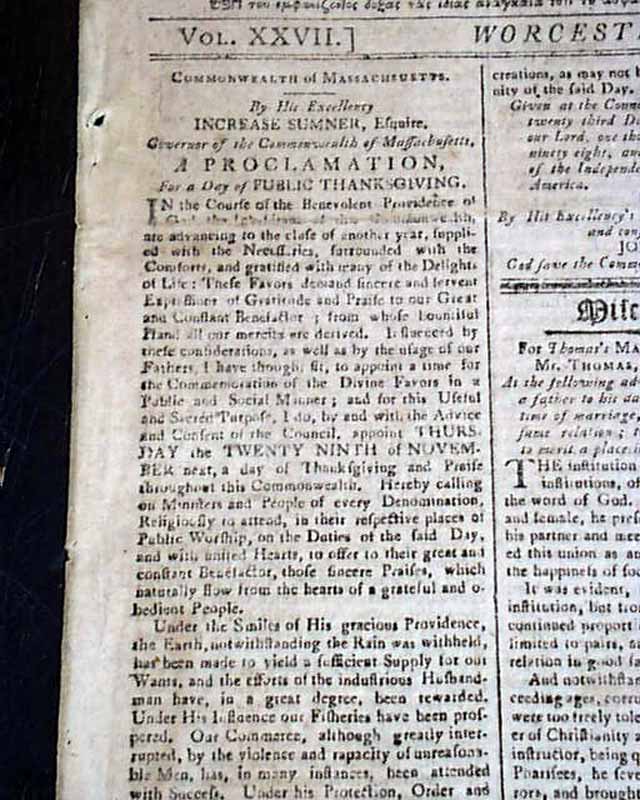 VOL. XXVII.]
WORCEST
COMMONWEALTH of MASSACHUSETTS.
By His Excellency
INCREASE SUMNER, Esquire,
Governor of the Commonwealth of Maſſachuſetts,
A PROCLAMATION,
For a Day of PUBLIC THANKSGIVING.
IN the Courſe of the Benevolent Providence of
God, the Inhabitants of this Commonwealth,
are advancing to the cloſe of another year, ſuppli-
ed with the Neceſſaries, ſurrounded with the
Comforts, and gratified with many of the Delights
of Life: Theſe Favors demand ſincere and fervent
Expreſſions of Gratitude and Praiſe to our Great
and Conſtant Benefactor; from whoſe bountiful
Hand all our mercies are derived. Influenced by
theſe conſiderations, as well as by the uſage of our
Fathers, I have thought fit, to appoint a time for
the Commemoration of the Divine Favors in a
Public and Social Manner; and for this Uſeful
and Sacred Purpoſe, I do, by and with the Advice
and Conſent of the Council, appoint THURS-
DAY the TWENTY NINTH of NOVEM-
BER next, a day of Thankſgiving and Praiſe
throughout this Commonwealth. Hereby calling
on Miniſters and People of every Denomination,
Religiouſly to attend, in their reſpective places of
Public Worſhip, on the Duties of the ſaid Day,
and with united Hearts, to offer to their great and
conſtant Benefactor, thoſe ſincere Praiſes, which
naturally flow from the hearts of a grateful and o-
bedient People.
Under the Smiles of His gracious Providence,
the Earth, notwithſtanding the Rain was withheld,
has been made to yield a ſufficient Supply for our
Wants, and the efforts of the induſtrious Huſband-
man have, in a great degree, been rewarded.
Under His Influence our Fiſheries have been proſ-
pered. Our Commerce, although greatly inter-
rupted, by the violence and rapacity of unreaſona-
ble Men, has, in many inſtances, been attended
with Succeſs. Under his Protection, Order and
creations, as may not b
nity of the ſaid Day.
Given at the Counc
twenty third D
our Lord, one tho
ninety eight, and
of the Independe
America.
By His Excellency's
and conſ
JO
God ſave the Comm
Miſc
For Thomas's MA
Mr. THOMAS,
At the following ad
a father to his da
time of marriage,
ſame relation; t
to merit a place in
THE inſtitution
inſtitutions, of
the word of God.
and female, he preſ
his partner and mee
ed this union as an
the happineſs of ſoc
It was evident,
inſtitution, but from
continued proport
limited to pairs, an
relation in good fa
And notwithſtan
ceeding ages, corru
were too freely tole
er of Chriſtianity a
inſtructor, being q
Phariſees, he ſeve
rors, and brough